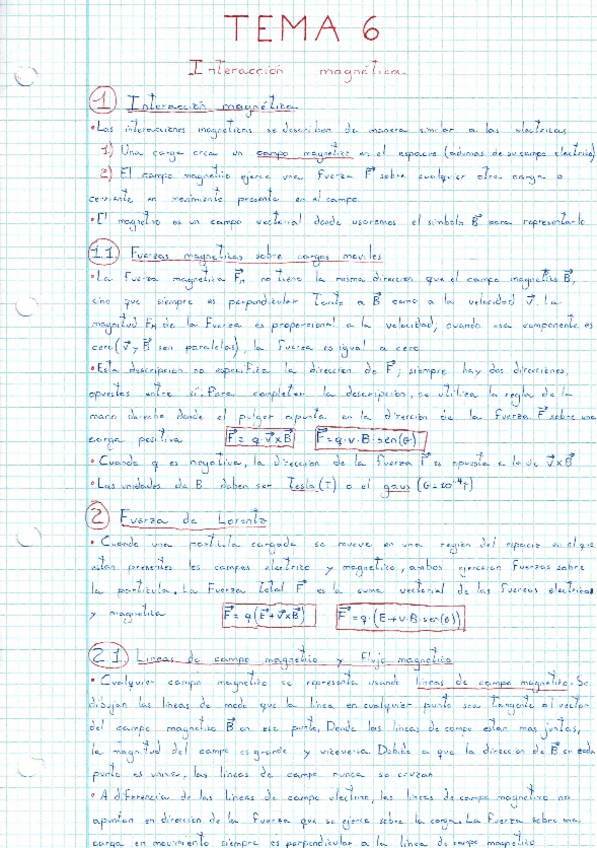 TEMA 6
Interacción magnética
1 Interacción magnética
• Las interacciones magnéticas se describen de manera similar a las eléctricas
1) Una carga crea un campo magnético en el espacio (además de su campo eléctrico)
2) El campo magnético ejerce una fuerza F sobre cualquier otra carga o
corriente en movimiento presente en el campo
• El magnético es un campo vectorial donde usaremos el símbolo B para representarlo
1.1 Fuerzas magnéticas sobre cargas moviles
• La fuerza magnética F_M no tiene la misma direccion que el campo magnético B,
sino que siempre es perpendicular tanto a B como a la velocidad v. La
magnitud F_M de la fuerza es proporcional a la velocidad, cuando esa componente es
cero (v y B son paralelas), la fuerza es igual a cero
• Esta descripcion no especifica la direccion de F; siempre hay dos direcciones,
opuestas entre sí. Para completar la descripcion, se utiliza la regla de la
mano derecha donde el pulgar apunta en la dirección de la fuerza F sobre una
carga positiva F = q·v×B F = q·v·B·sen(θ)
• Cuando q es negativa, la dirección de la fuerza F es opuesta a la de v×B
• Las unidades de B deben ser Tesla (T) o el gaus (G=10⁻⁴T)
2 Fuerza de Lorentz
• Cuando una partícula cargada se mueve en una región del espacio en el que
estan presentes los campos electrico y magnetico, ambos ejercen fuerzas sobre
la partícula. La fuerza total F es la suma vectorial de las fuerzas electricas
y magnetica F = q(E+v×B) F = q·(E+v·B·sen(θ))
2.1 Lineas de campo magnetico y flujo magnetico
• Cualquier campo magnetico se representa usando lineas de campo magnetico. Se
dibujan las lineas de modo que la linea en cualquier punto sea tangente al vector
del campo magnetico B en ese punto, Donde las lineas de campo estan mas juntas,
la magnitud del campo es grande y viceversa. Debido a que la direccion de B en cada
punto es unica, las lineas de campo nunca se cruzan
• A diferencia de las lineas de campo electrico, las lineas de campo magnetico no
apuntan en direccion de la fuerza que se ejerce sobre la carga. La fuerza sobre una
carga en movimiento siempre es perpendicular a la linea de campo magnetico